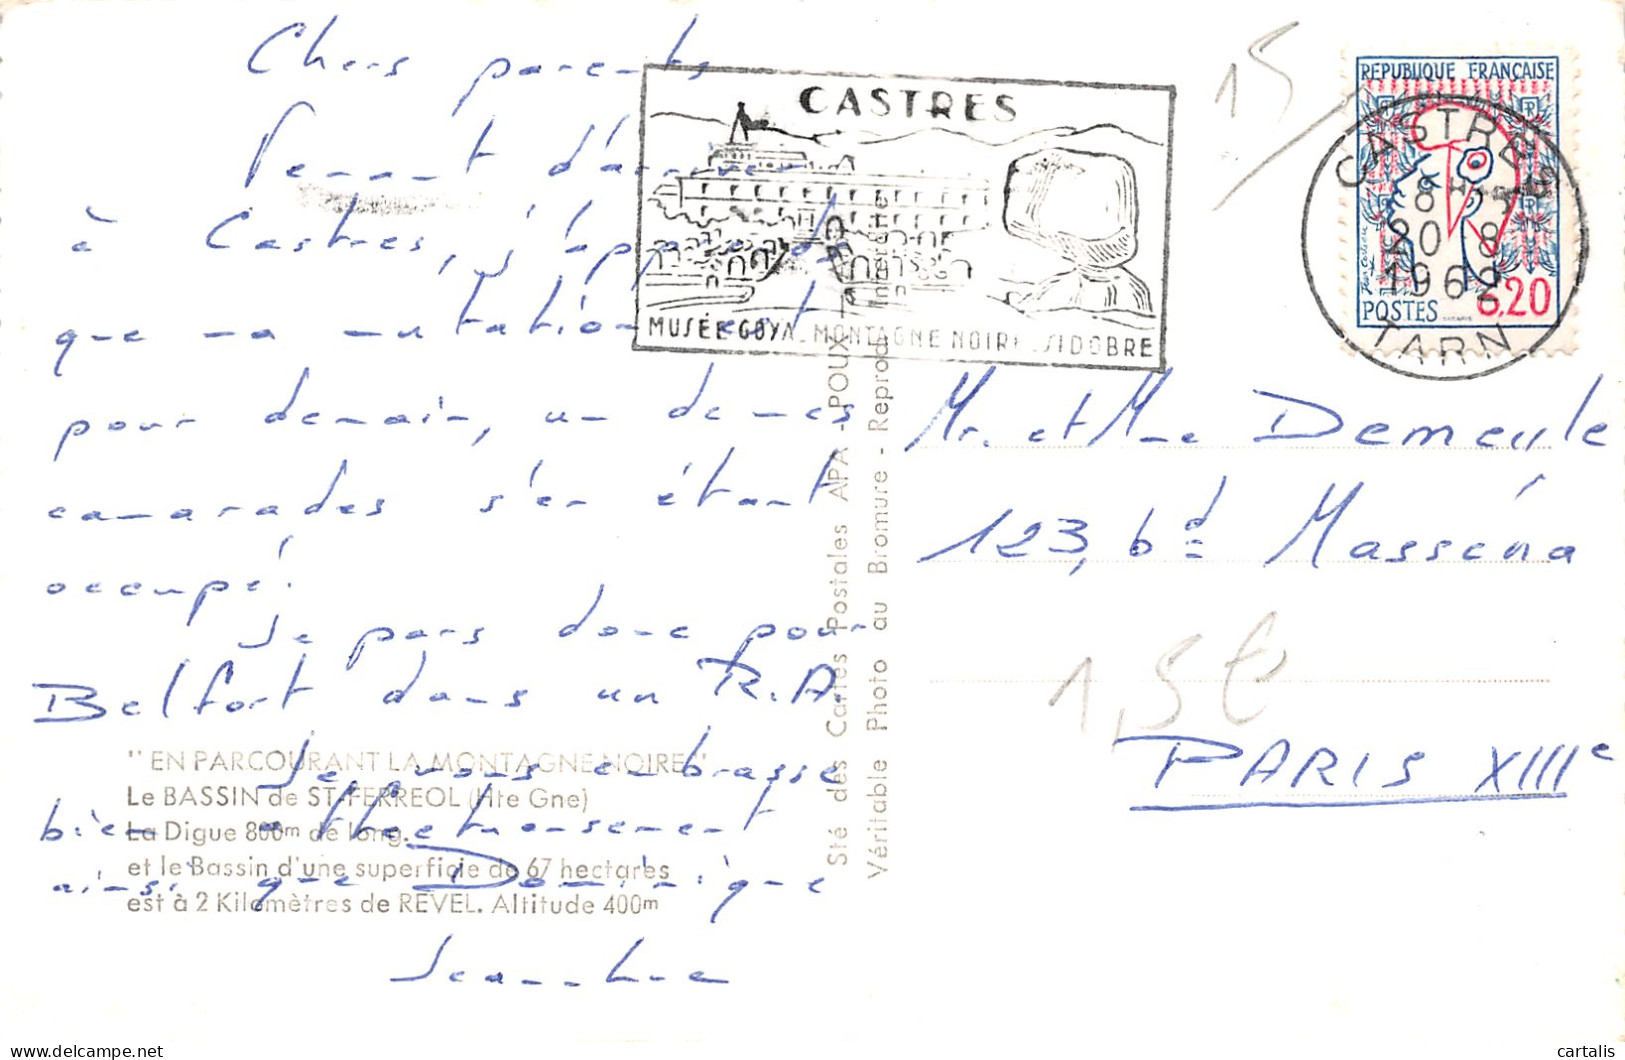 Chers parents,
Venant d'arriver
à Castres, j'apprends
que ma mutation est
pour demain, un de mes
camarades s'en étant
occupé.
Je pars donc pour
Belfort dans un R.A.
Je vous embrasse
bien affectueusement
ainsi que Dominique
Jean-Luc
"EN PARCOURANT LA MONTAGNE NOIRE"
Le BASSIN de ST-FERREOL (Hte Gne)
La Digue 800m de long.
et le Bassin d'une superficie de 67 hectares
est à 2 Kilomètres de REVEL. Altitude 400m
Sté des Cartes Postales APA - POUX -
Véritable Photo au Bromure - Reprod. Interdite
CASTRES
MUSÉE GOYA - MONTAGNE NOIRE - SIDOBRE
15
REPUBLIQUE FRANÇAISE
POSTES 0,20
CASTRES
20 8
1962
TARN
Mr. et Mme Demeyle
123, bd Masséna
1,5€
PARIS XIIIe
cartalis